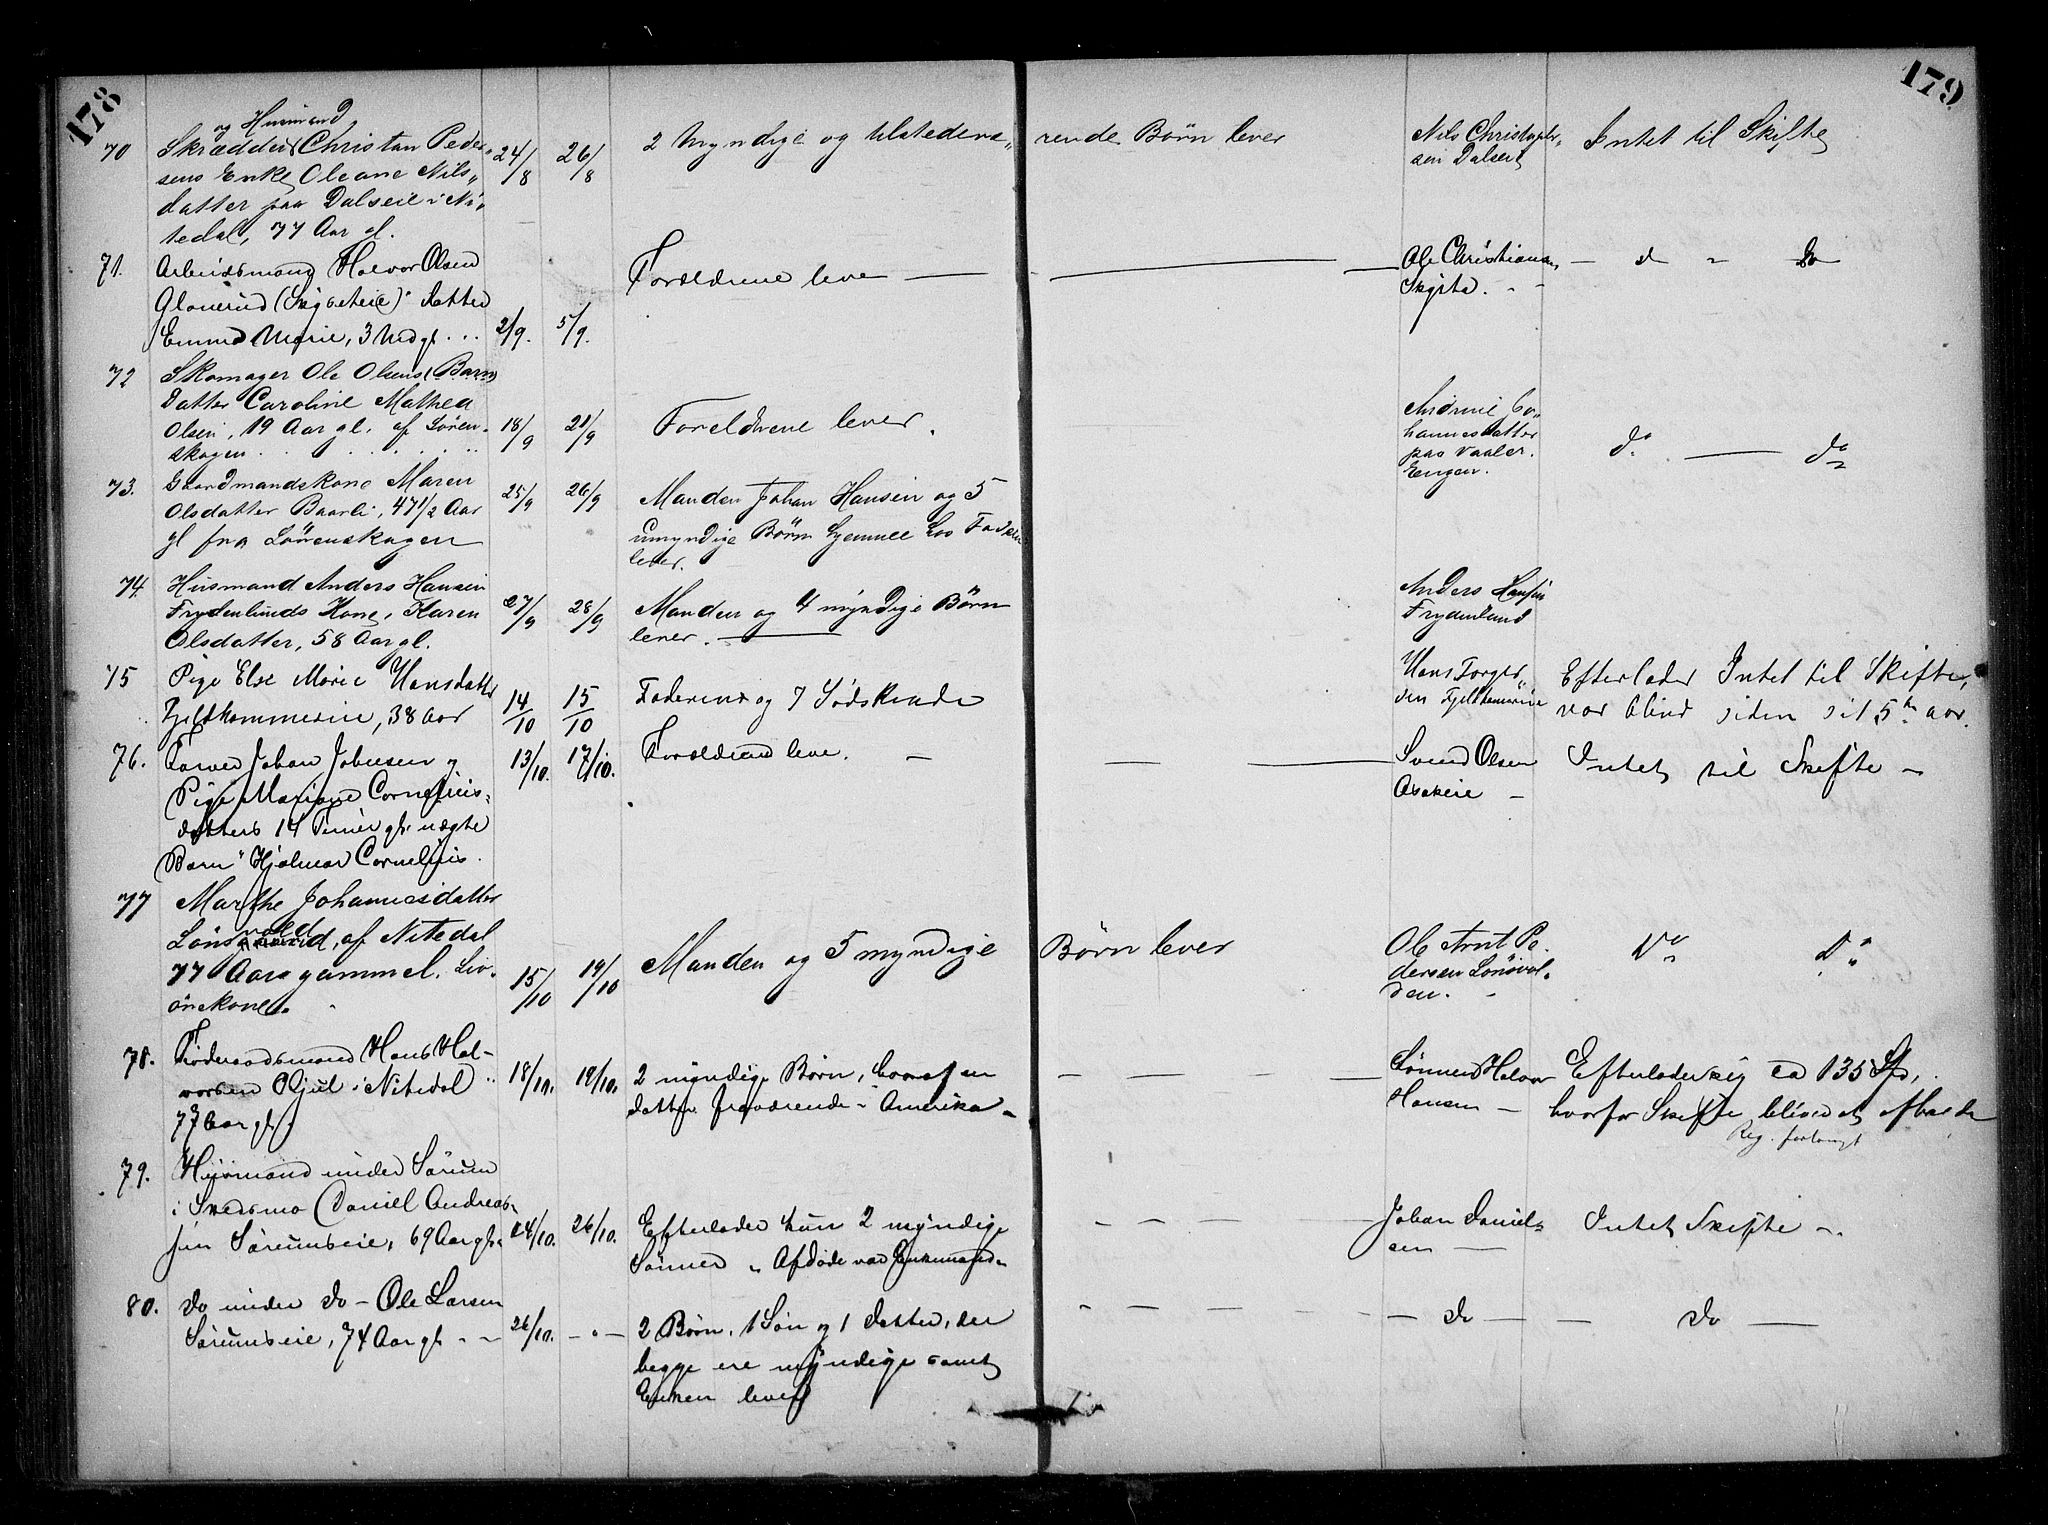 178
179
og Husmand
70 Skrædder Christian Peder-
sens Enke Oleane Nils-
datter paa Dalseie i Ni-
tedal, 77 Aar gl.
24/8 26/8
2 Myndige og tilstedevæ-
rende Børn lever
Nils Christopher-
sen Dalseie
Intet til Skifte
71. Arbeidsmand Halvor Olsen
datter
Marie, 3 Md gl.
2/9. 5/9.
Forældrene leve
Ole Christiansen
do do
72 Skomager Ole Olsens (Barn)
Datter Caroline Mathea
Olsen, 19 Aar gl. af Løren-
skogen
18/9 21/9
Foreldrene lever.
Jo-
hannesdatter
paa Vaaler-
Engen.
do do
73. Gaardmandskone Maren
Olsdatter Baarli, 47 1/2 Aar
gl fra Lørenskogen
25/9 26/9
Manden Johan Hansen og 5
umyndige Børn hjemme hos Faderen
lever.
74. Husmand Anders Hansen
Frydenlunds Kone, Karen
Olsdatter, 58 Aar gl.
27/9 28/9
Manden og 4 myndige Børn
lever.
Anders Hansen
Frydenlund
75 Pige Else Marie Hansdatter
38 Aar
14/10 15/10
Faderen og 7 Sødskende
Hans Torger-
sen
Efterlader Intet til Skifte,
var blind siden sit 5te Aar.
76. Johan Johnsen og
Pige Mariane Cornelius-
datters 14 Timer gl. uægte
Barn "Hjalmar Cornelius.
13/10. 17/10.
Forældrene leve.
Svend Olsen
Aaseie
Intet til Skifte
77 Marthe Johannesdatter
Lønsvold, af Nitedal
77 Aar gammel. Liv-
ørekone.
15/10 19/10
Manden og 5 myndige
Børn lever
Ole Arnt Pe-
dersen Lønsvol-
den.
Do Do
78. Føderaadsmand Hans Hal-
vorsen i Nitedal
77 Aar gl.
18/10. 19/10.
2 myndige Børn, hvoraf en
datter fraværende i Amerika
Sønnen Halvor
Hansen
Efterlader sig ca 135 Spd,
hvorfor Skifte bliver at afholde
Reg. forlangt
79. Husmand under Sørum
i Skedsmo Daniel Andreas-
sen Sørumseie, 69 Aar gl.
24/10. 26/10.
Efterlader kun 2 myndige
Sønner Afdøde var Enkemand
Johan Daniel-
sen
Intet Skifte
80. do under do Ole Larsen
Sørumseie, 74 Aar gl.
26/10.
2 Børn, 1 Søn og 1 datter, der
begge ere myndige samt
Enken lever
do
do